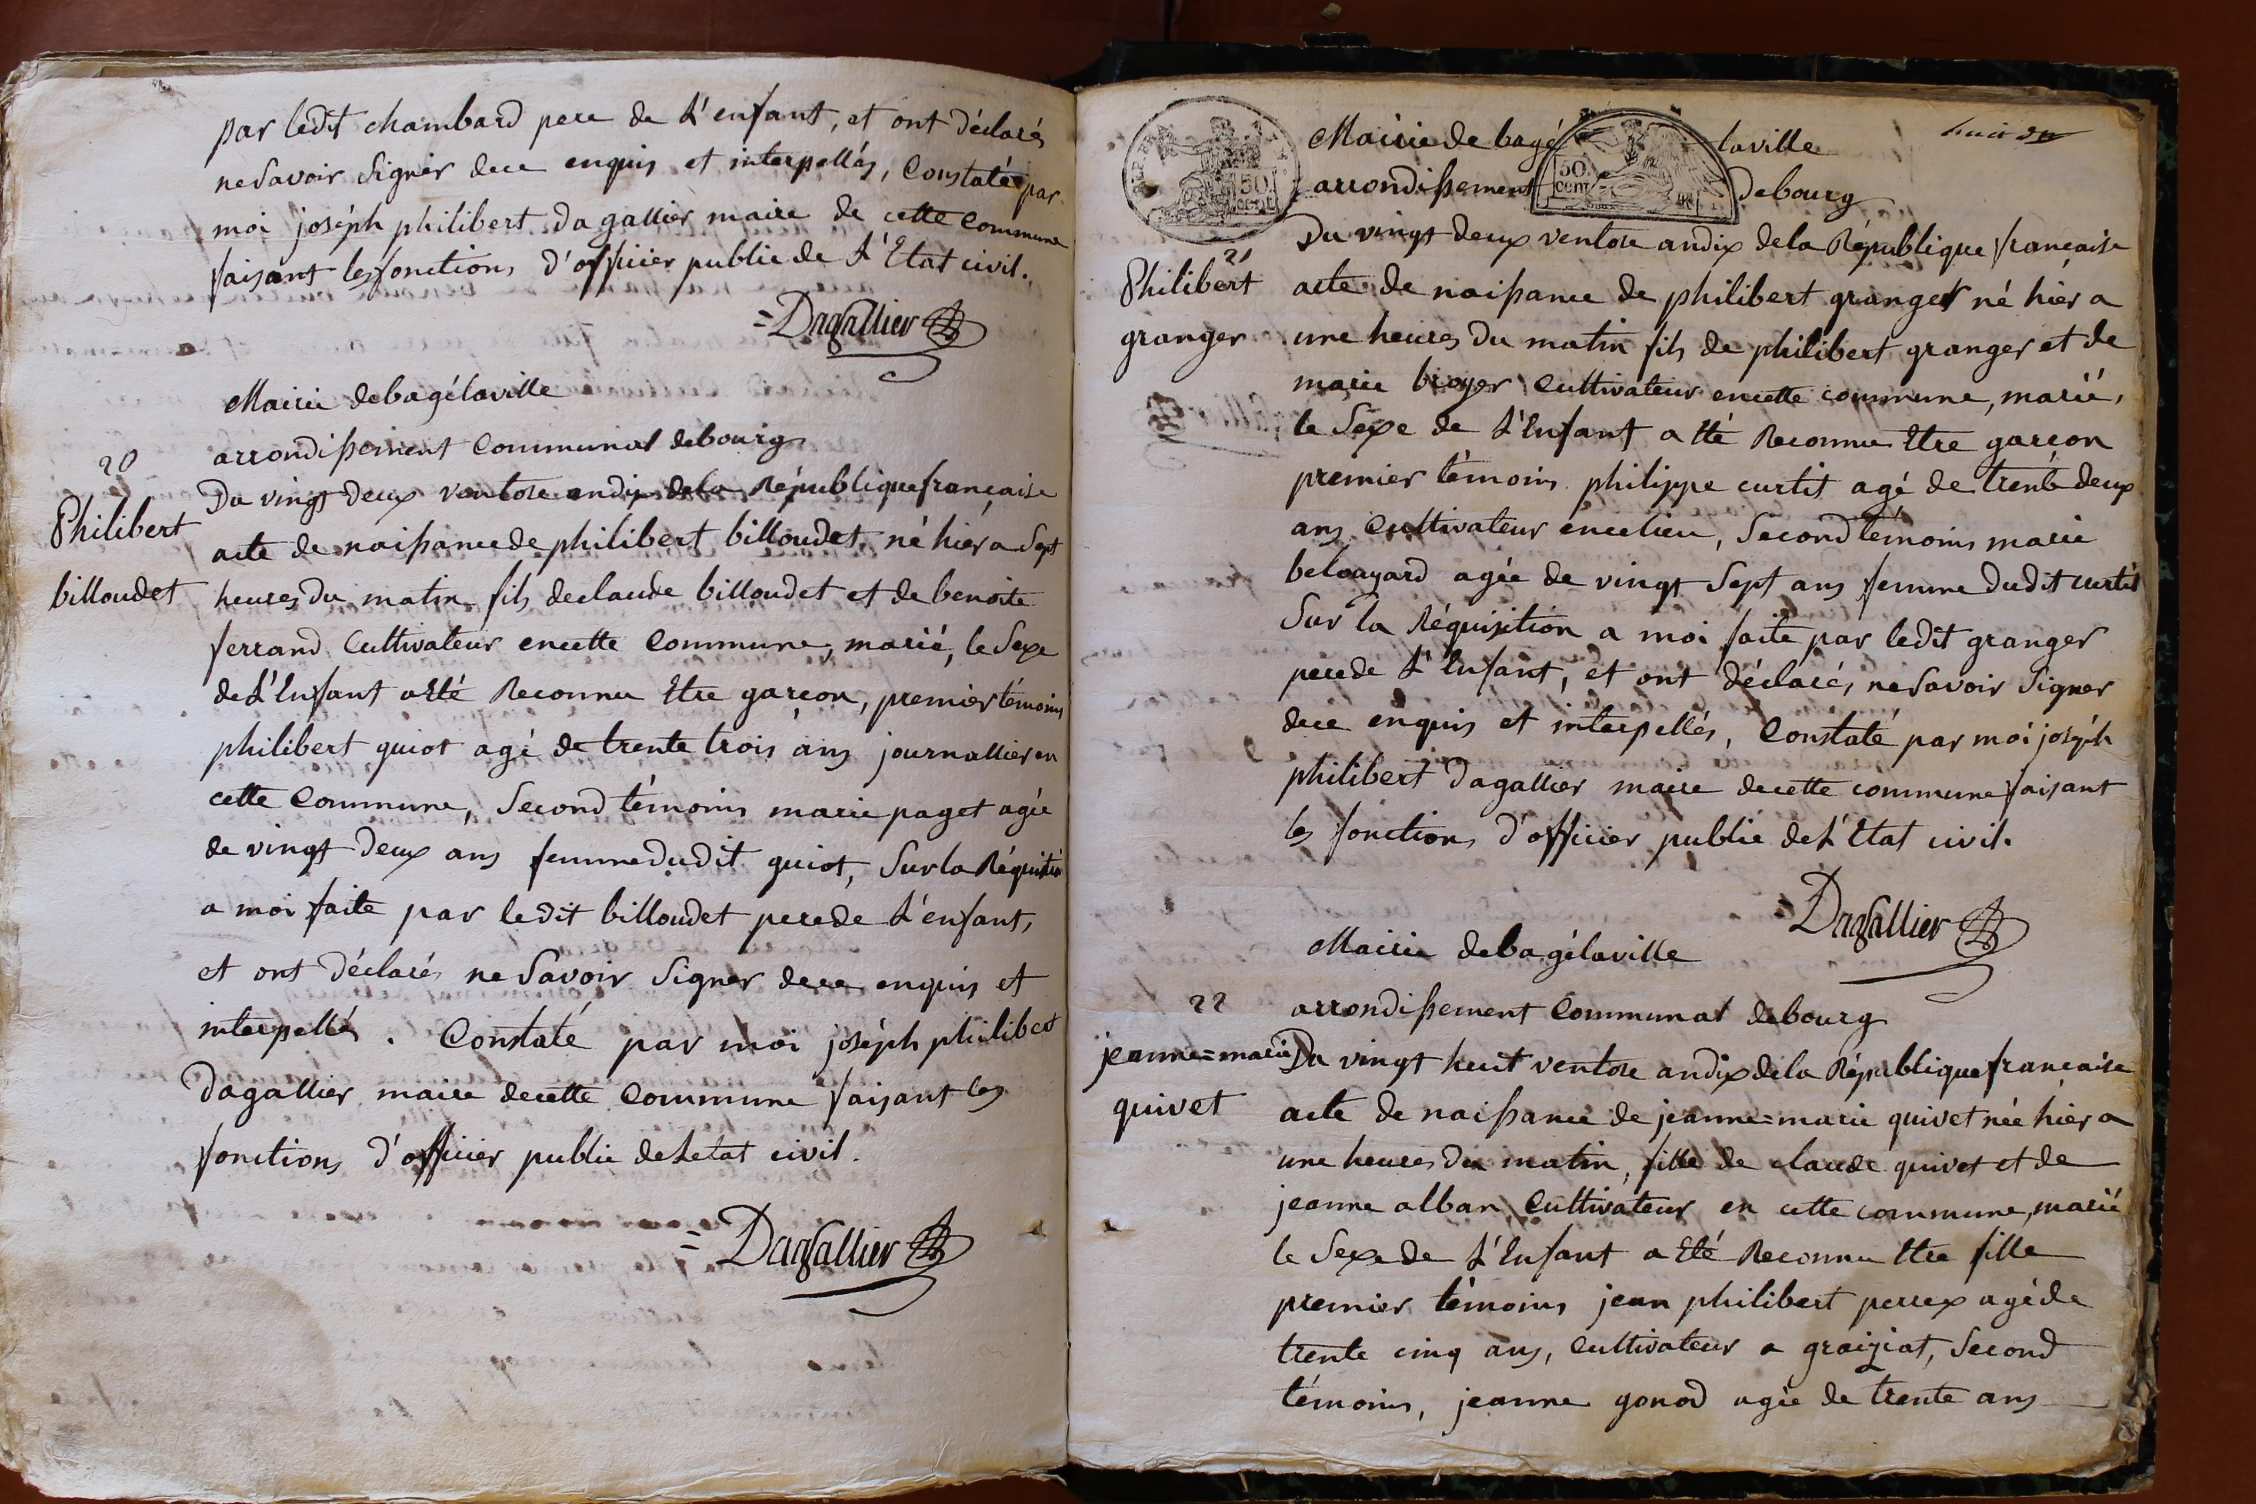 par ledit chambard pere de L'enfant, et ont déclarés
ne Savoir Signer dece enquis et interpellés, Constaté par
moi joséph philibert dagallier maire de cette Commune
faisant les fonctions d'officier public de L'Etat civil.
=Dagallier
Mairie debagélaville
arrondissement Communal debourg
20
Philibert
billoudet
Du vingt deux ventose andix dela République française
acte de naissance de philibert billoudet né hier a Sept
heures du matin fils declaude billoudet et de benoite
ferrand Cultivateur encette Commune, marié, le Sexe
de L'Enfant a Eté Reconnu Etre garcon, premier témoins
philibert guiot agé de trente trois ans journallier en
cette Commune, Second témoins marie paget agée
de vingt deux ans femme dudit guiot, Sur la Réquisition
a moi faite par ledit billoudet perede L'enfant,
et ont déclarés ne Savoir Signer dece enquis et
interpellés. Constaté par moi joséph philibert
Dagallier maire decette Commune faisant les
fonctions d'officier public deLetat civil.
=Dagallier
Mairie de bagé laville
arrondissement debourg
50 cent
50. cem
21
Philibert
granger
Du vingt deux ventose andix dela République française
acte de naissance de philibert granger né hier a
une heures du matin fils de philibert granger et de
marie broyer Cultivateur encette commune, marié,
le Sexe de L'Enfant a Eté Reconnu Etre garcon
premier témoins philippe curtit agé de trente deux
ans Cultivateur encelieu, Second témoins marie
belouyard agée de vingt Sept ans femme dudit curtit
Sur la Réquisition a moi faite par ledit granger
perede L'Enfant, et ont déclarés ne Savoir Signer
dece enquis et interpellés, Constaté par moi joséph
philibert Dagallier maire decette commune faisant
les fonctions d'officier public de L'Etat civil.
=Dagallier
Mairie debagélaville
arrondissement Communal debourg
22
jeanne=marie
quivet
Du vingt huit ventose andix dela République française
acte de naissance de jeanne=marie quivet née hier a
une heures du matin, fille de claude quivet et de
jeanne alban Cultivateur en cette commune, marié
le Sexe de L'Enfant a Eté Reconnu Etre fille
premier témoins jean philibert perrex agé de
trente cinq ans, Cultivateur a graiziat, Second
témoins, jeanne gonod agée de trente ans